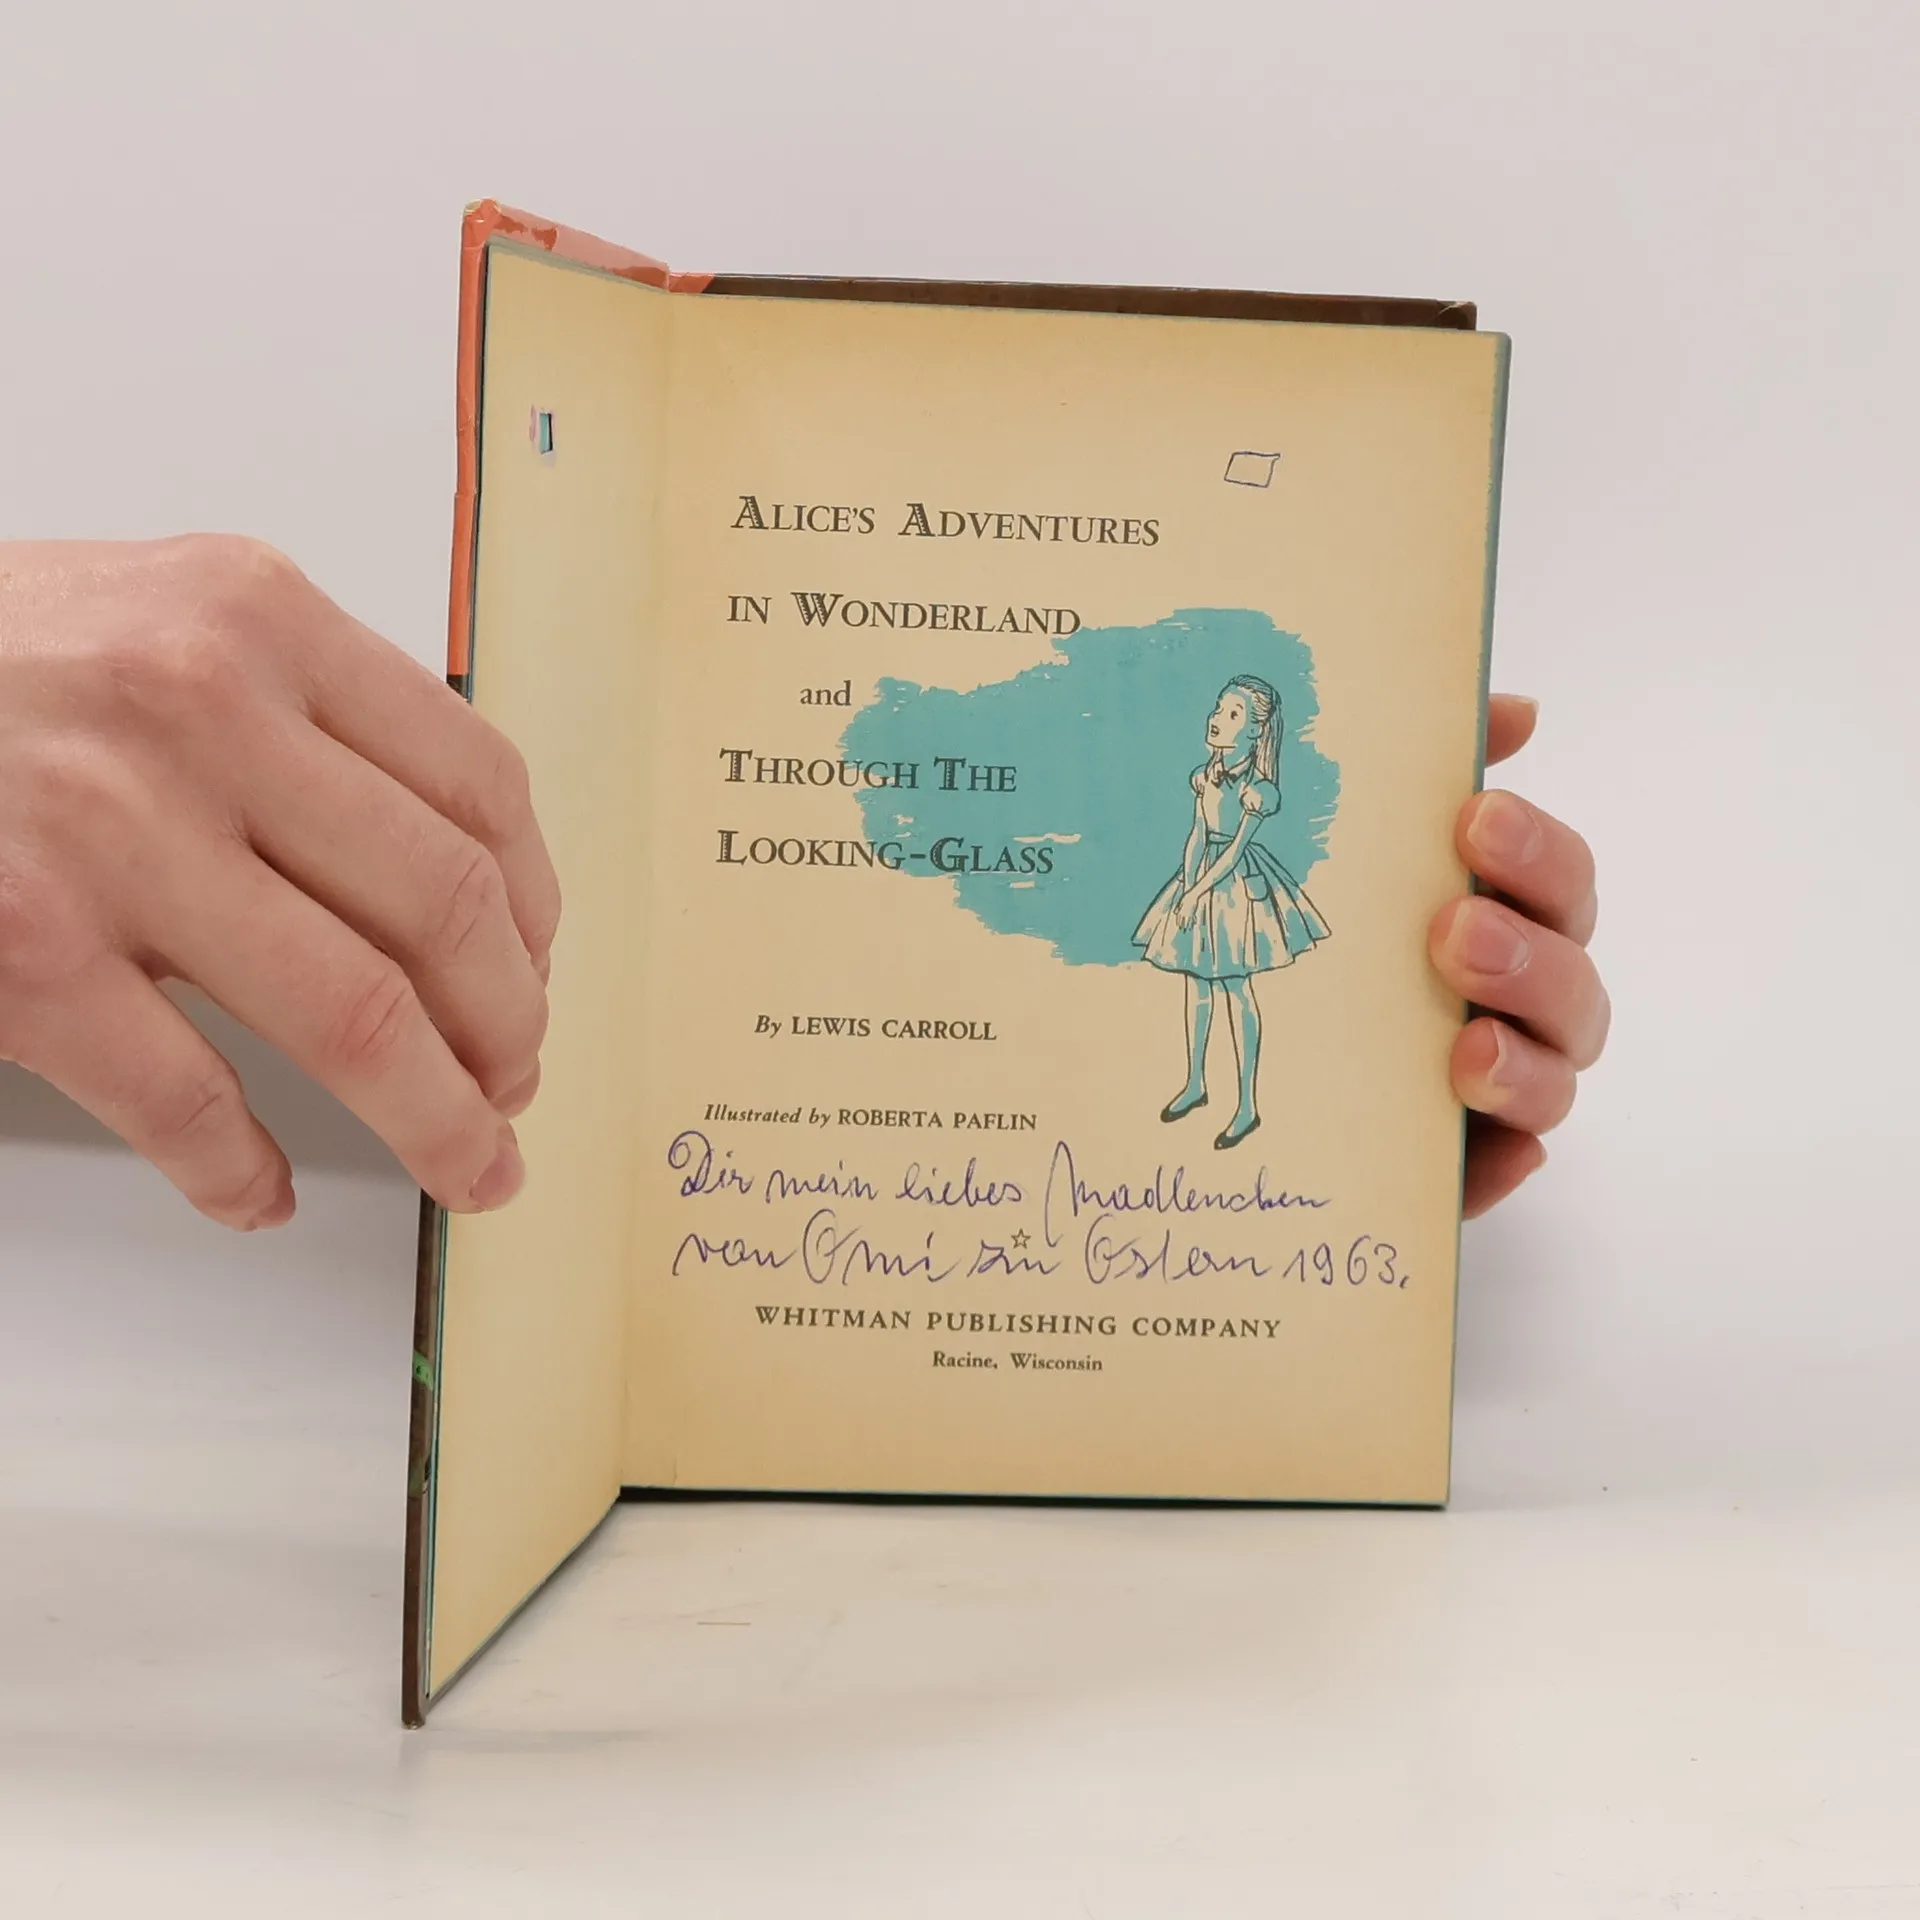 ALICE'S ADVENTURES
IN WONDERLAND
and
THROUGH THE
LOOKING-GLASS
By LEWIS CARROLL
Illustrated by ROBERTA PAFLIN
Dir mein liebes Madlenchen
von Omi zu Ostern 1963.
WHITMAN PUBLISHING COMPANY
Racine, Wisconsin